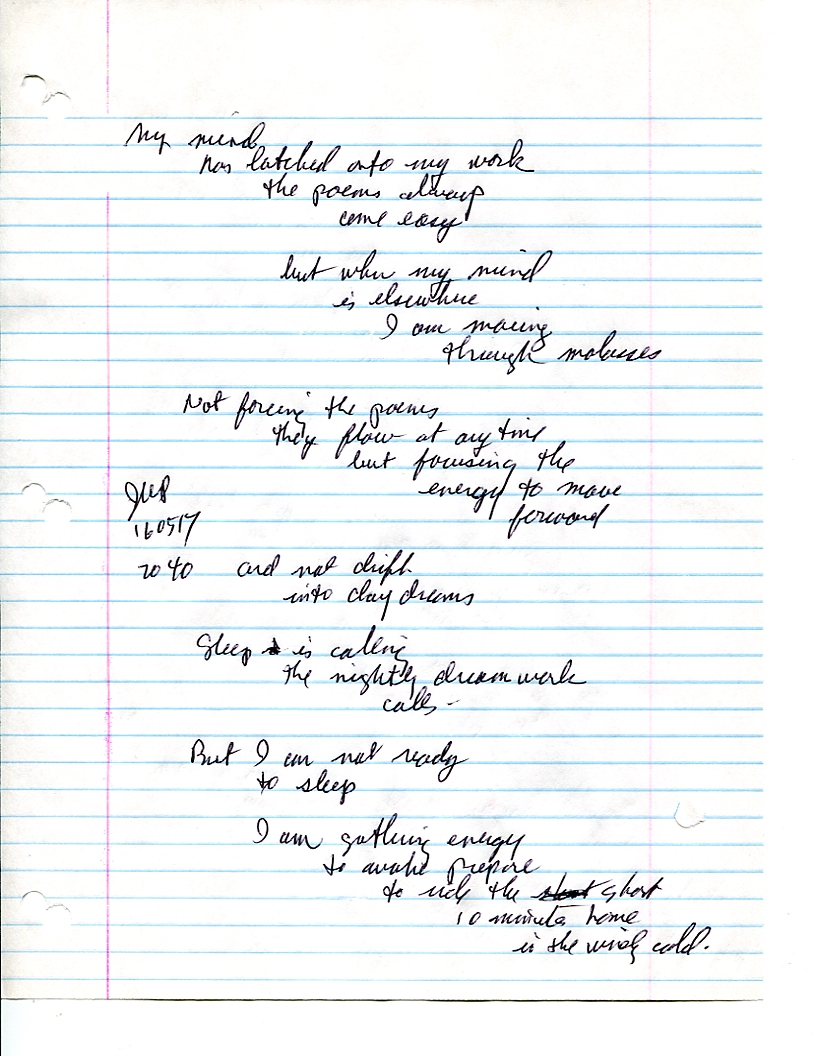 My mind
has latched onto my work
the poems always
come easy
but when my mind
is elsewhere
I am moving
through molasses
Not forcing the poems
they flow at any time
but focusing the
energy to move
forward
160517
2040
and not drift
into day dreams
Sleep is calling
the nightly dream work
calls-
But I am not ready
to sleep
I am gathering energy
to awake prepare
to ride the short short
10 minutes home
in the windy cold.